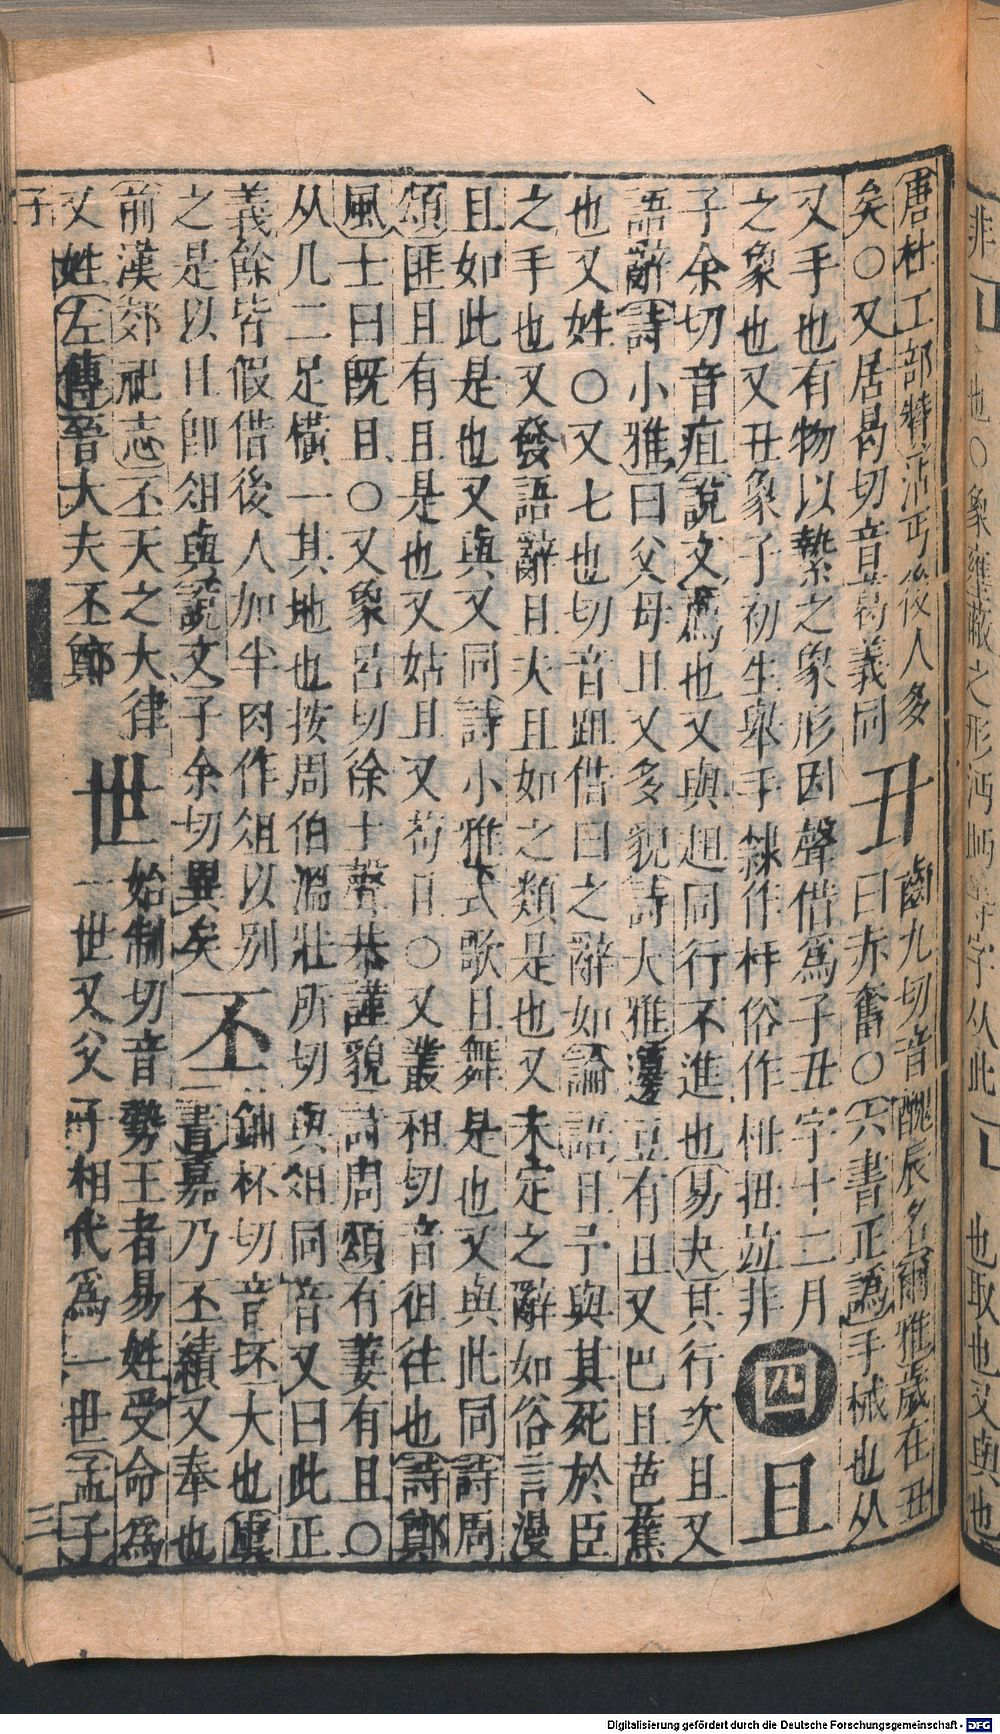 唐杜工部贊沾丐後人多
矣○又居曷切音葛義同
丑
齒九切音醜辰名爾雅歲在丑
曰赤奮○六書正譌手械也从
又手也有物以縶之象形因聲借爲子丑字十二月
之象也又丑象子初生舉手隸作杽俗作杻扭竝非
四
且
子余切音疽說文薦也又與趄同行不進也易夬其行次且又
語辭詩小雅曰父母且又多貌詩大雅籩豆有且又巴且芭蕉
也又姓○又七也切音跙借曰之辭如論語且予與其死於臣
之手也又發語辭且夫且如之類是也又未定之辭如俗言漫
且如此是也又與又同詩小雅式歌且舞是也又與此同詩周
頌匪且有且是也又姑且又苟且○又叢租切音徂往也詩鄭
風士曰旣且○又象呂切徐士聲恭謹貌詩周頌有萋有且○
从几二足橫一其地也按周伯溫壯所切與俎同音又曰此正
義餘皆假借後人加半肉作俎以别
之是以且卽俎與說文子余切異矣
丕
鋪杯切音坯大也虞
書嘉乃丕績又奉也
前漢郊祀志丕天之大律
又姓左傳晉大夫丕鄭
世
始制切音勢王者易姓受命爲
一世又父子相代爲一世孟子
子
三
非
也○象壅蔽之形沔眄等字从此
也取也又與也
Digitalisierung gefördert durch die Deutsche Forschungsgemeinschaft - DFG